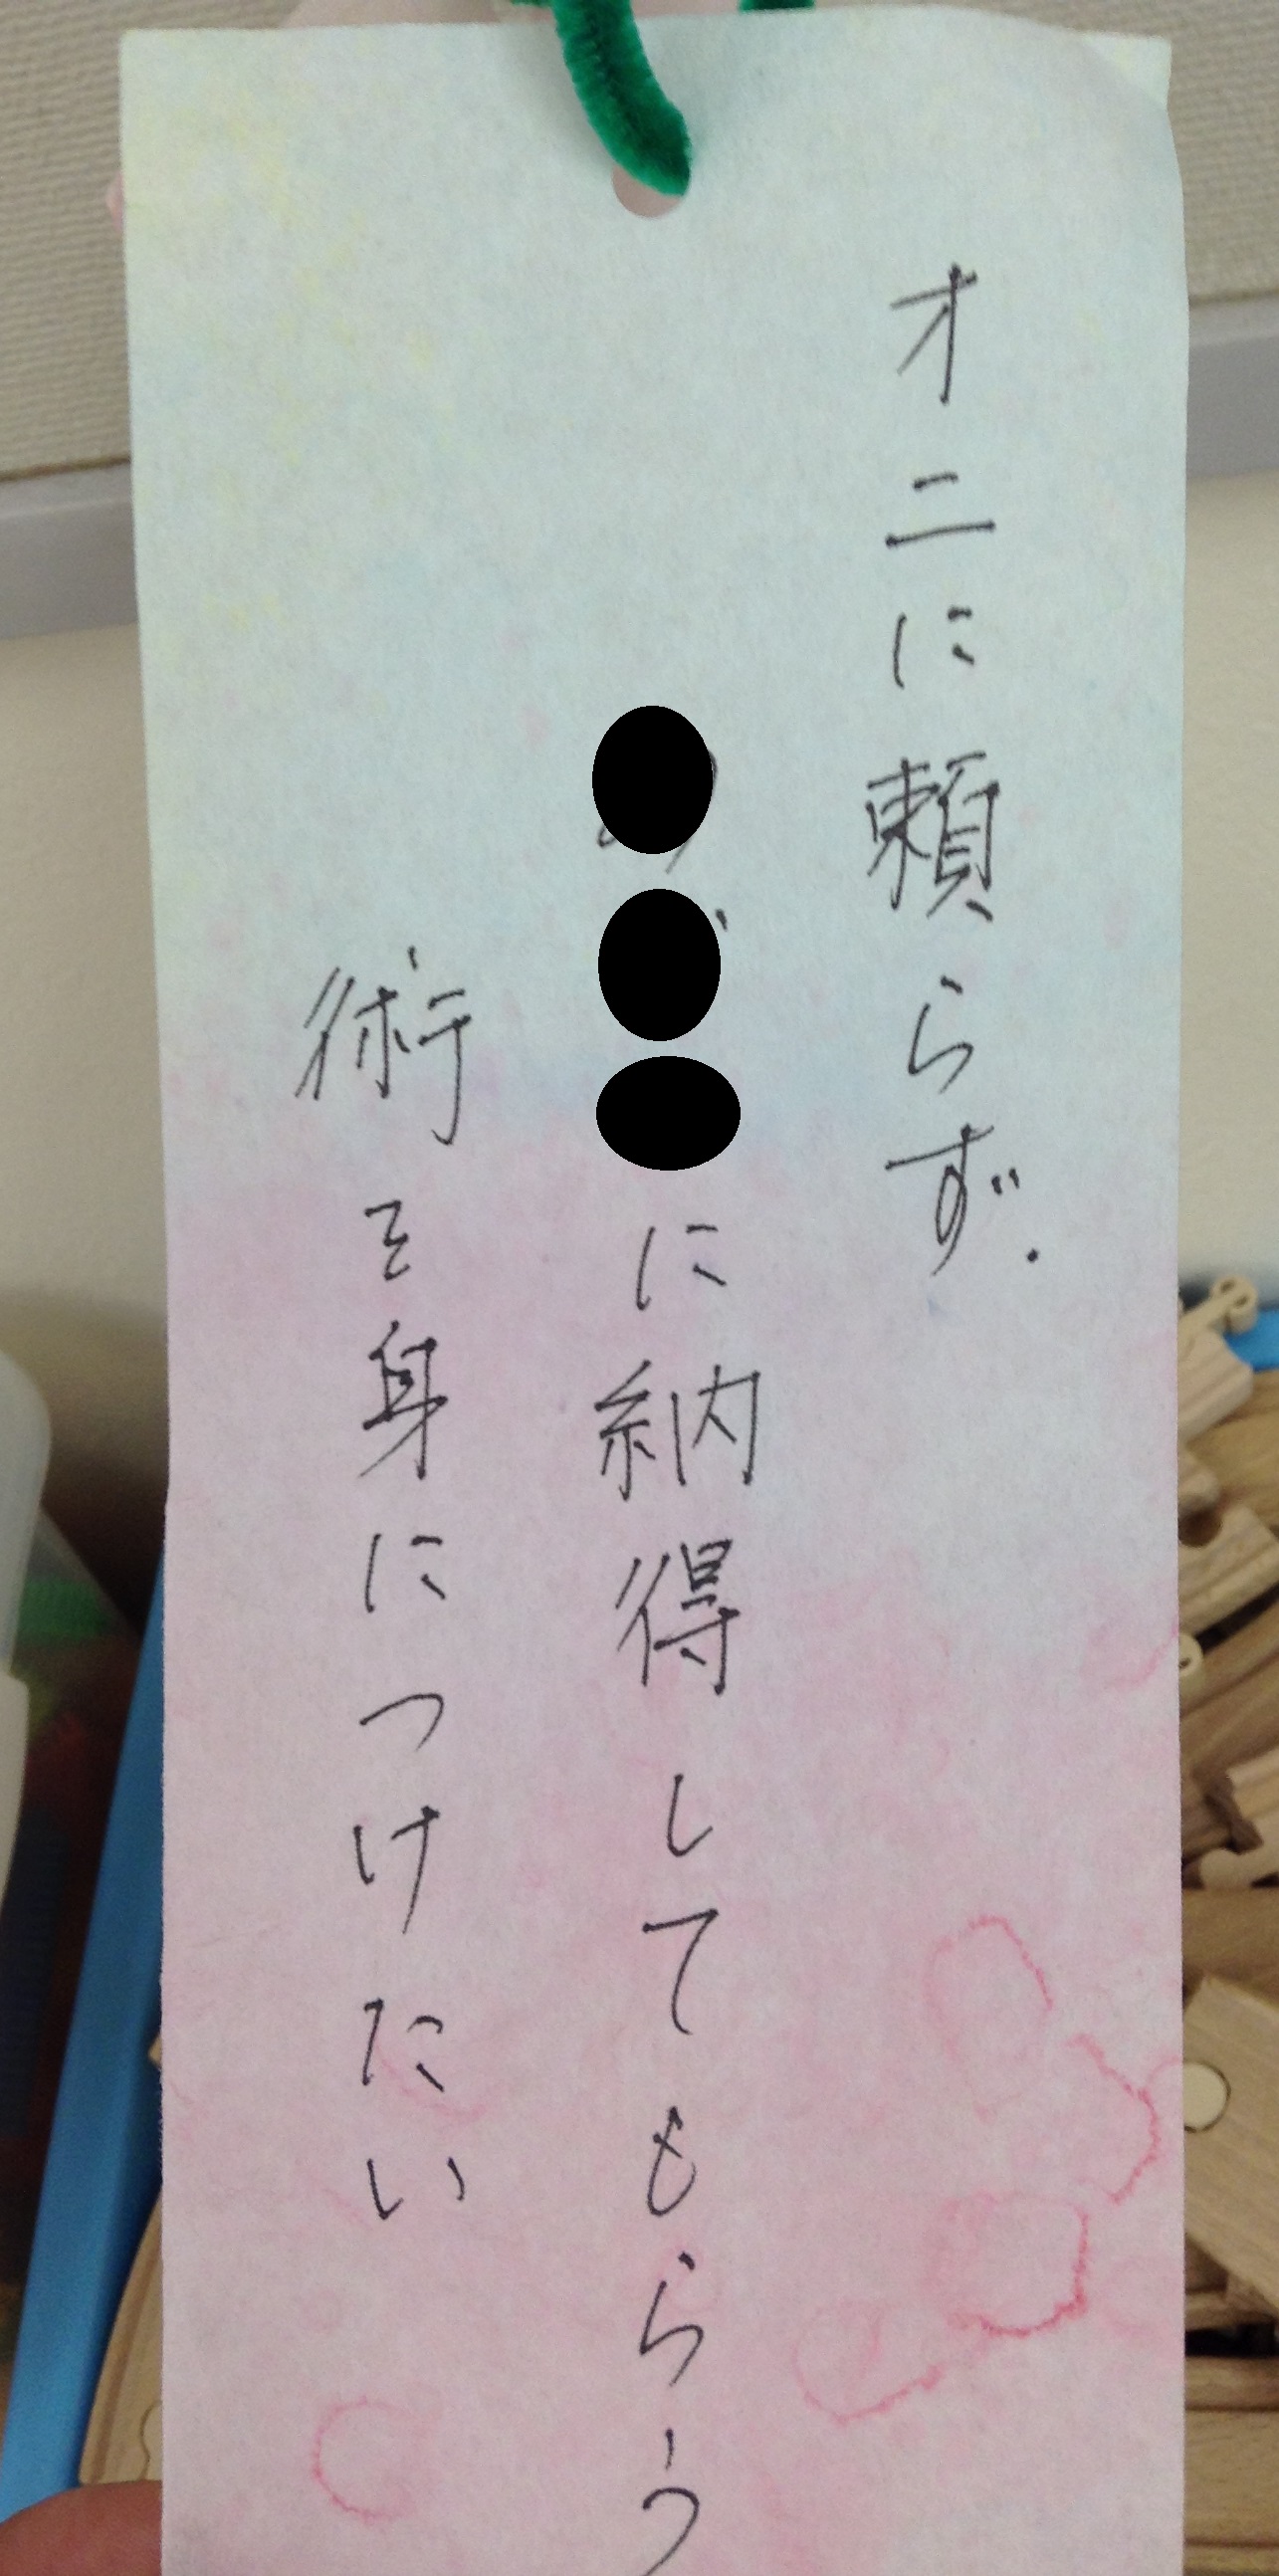 オニに頼らず.
に納得してもらう
術を身につけたい